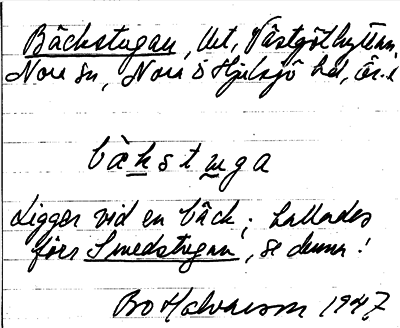 Bäckstugan, Ut, Västgöthyttan,
Nora sn, Nora o Hjulsjö hd, Ör.l
bàkstuga
Ligger vid en bäck; kallades
förr Smedstugan, se denna!
Bo Halvarson 1947